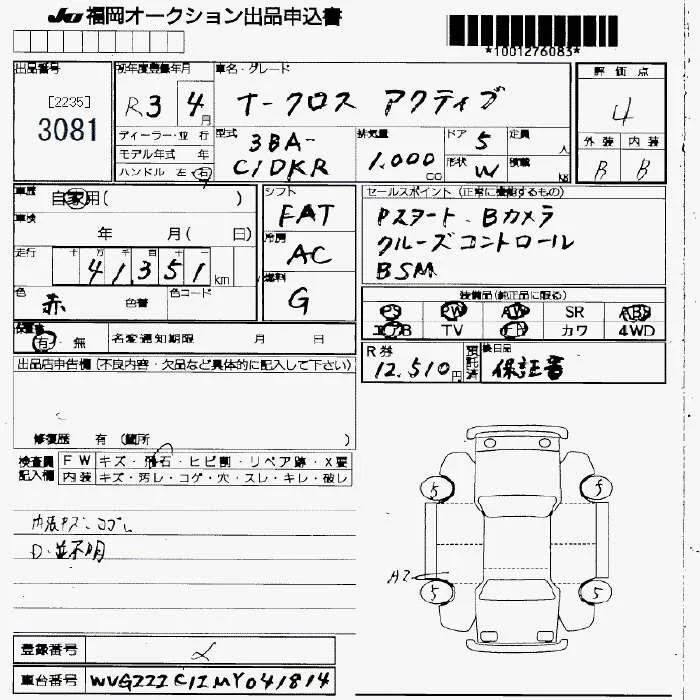 JU 福岡オークション出品申込書
*1001276083*
出品番号
[2235]
3081
初年度登録年月
R3 4月
車名・グレード
T-クロス アクティブ
評価点
4
外装 内装
B B
ディーラー・並行
モデル年式 年
ハンドル 左 右
型式
3BA-
C1DKR
排気量
1.000 CC
ドア 5
形状 W
定員 人
積載 KG
車歴
自家用( )
車検
年 月(日)
走行
十 万 千 百 十 一
41,351 km
色
赤 色替
色コード
シフト
FAT
冷房
AC
燃料
G
セールスポイント (正常に機能するもの)
Pスタート、Bカメラ
クルーズコントロール
BSM
装備品(純正品に限る)
PS PW AW SR ABS
エアB TV ナビ カワ 4WD
有・無 名変通知期限 月 日
R券
12,510円
預託済
後日品
保証書
出品店申告欄(不良内容・欠品など具体的に記入して下さい)
修復歴 有(箇所 )
検査員
記入欄
FW キズ・飛石・ヒビ割・リペア跡・X要
内装 キズ・汚レ・コゲ・穴・スレ・キレ・破レ
内張キズ・ヨゴレ
D・並不明
5 5
A2
5 5
登録番号
車台番号 WVGZZZC1ZMY041814